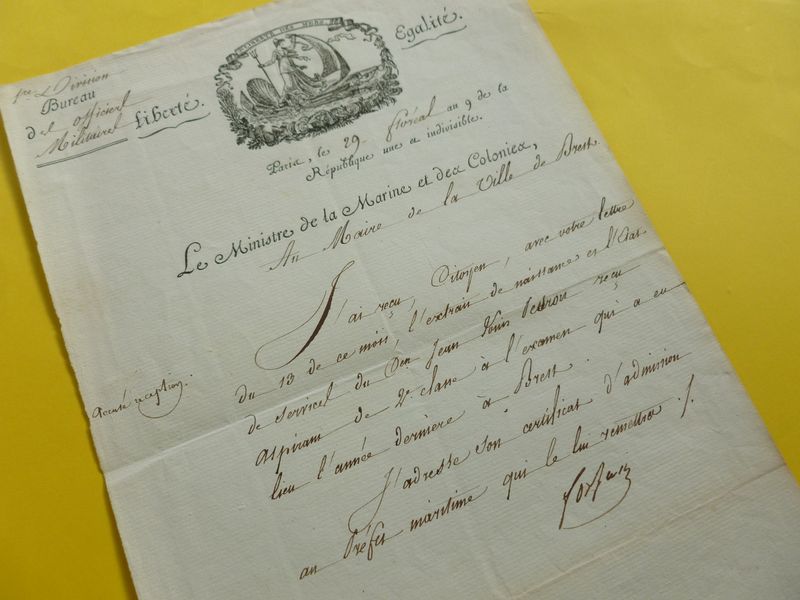 LIBERTÉ DES MERS
1re Division
Bureau
des officiers
Militaires
Liberté.
Egalité.
Paris, le 29 floréal an 9 de la
République une et indivisible.
Le Ministre de la Marine et des Colonies,
Au Maire de la Ville de Brest
accusé réception.
J'ai reçu, Citoyen, avec votre lettre
du 13 de ce mois, l'extrait de naissance et l'Etat
de services du Cen Jean Louis reçu
aspirant de 2e classe à l'examen qui a eu
lieu l'année dernière à Brest.
J'adresse son certificat d'admission
au Préfet maritime qui le lui remettra ./.